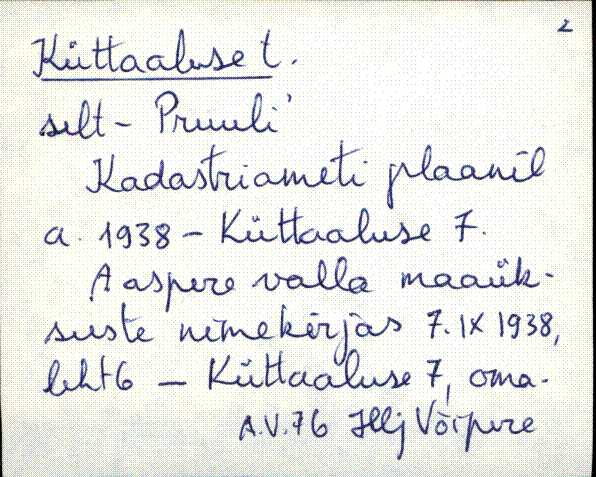 2
Küttaaluse t.
selt - Pruuli'
Kadastriameti plaanil
a. 1938 - Küttaaluse 7.
Aaspere valla maaük-
suste nimekirjas 7.IX 1938,
leht 6 - Küttaaluse 7, oma-
A.V.76 Illj Võipere